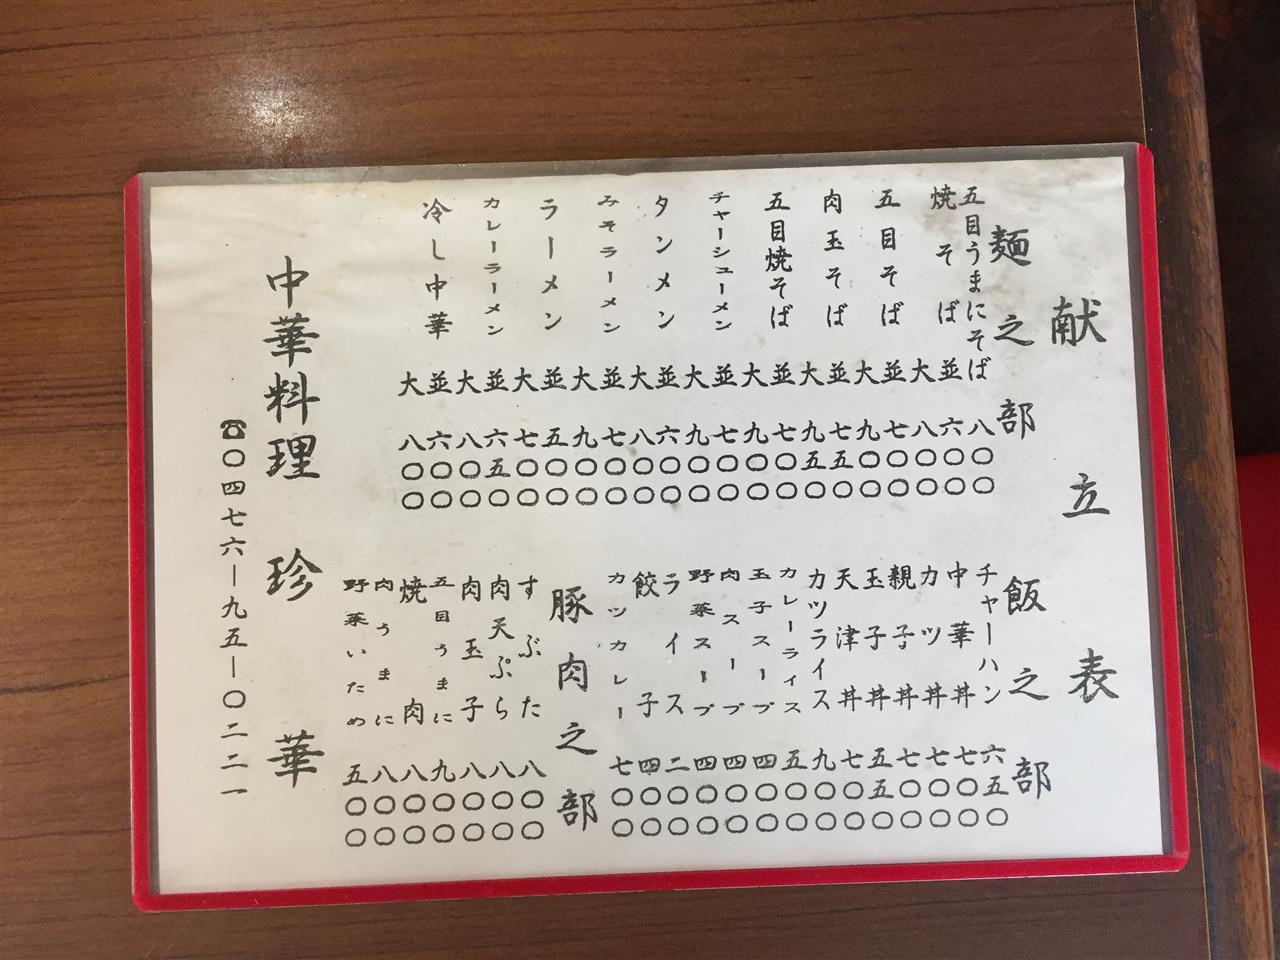 献立表
麺之部
五目うまにそば 八〇〇
焼そば 並 六〇〇
大 八〇〇
五目そば 並 七〇〇
大 九〇〇
肉玉そば 並 七五〇
大 九五〇
五目焼そば 並 七〇〇
大 九〇〇
チャーシューメン 並 七〇〇
大 九〇〇
タンメン 並 六〇〇
大 八〇〇
みそラーメン 並 七〇〇
大 九〇〇
ラーメン 並 五〇〇
大 七〇〇
カレーラーメン 並 六五〇
大 八〇〇
冷し中華 並 六〇〇
大 八〇〇
飯之部
チャーハン 六五〇
中華丼 七〇〇
カツ丼 七〇〇
親子丼 七〇〇
玉子丼 五五〇
天津丼 七〇〇
カツライス 九〇〇
カレーライス 五〇〇
玉子スープ 四〇〇
肉スープ 四〇〇
野菜スープ 四〇〇
ライス 二〇〇
餃子 四〇〇
カツカレー 七〇〇
豚肉之部
すぶた 八〇〇
肉天ぷら 八〇〇
肉玉子 八〇〇
五目うまに 九〇〇
焼肉 八〇〇
肉うまに 八〇〇
野菜いため 五〇〇
中華料理 珍華
☎〇四七六―九五―〇二二一